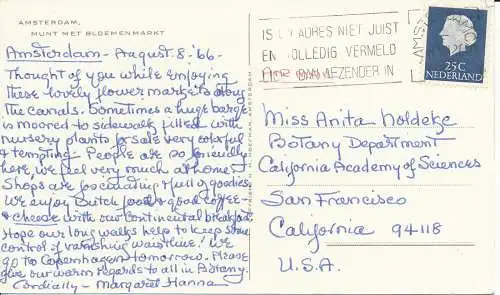 AMSTERDAM,
MUNT MET BLOEMENMARKT
Amsterdam - August 8. '66 -
Thought of you while enjoying
these lovely flower markets along
the canals. Sometimes a huge barge
is moored to sidewalk filled with
nursery plants for sale very colorful
& tempting - People are so friendly
here, we feel very much at home!
Shops are fascinating & full of goodies.
We enjoy Dutch food & good coffee -
& cheese with our Continental breakfast
Hope our long walks help to keep some
control of vanishing waistline! We
go to Copenhagen tomorrow. Please
give our warm regards to all in Botany.
Cordially - Margaret Hanna
IS UW ADRES NIET JUIST
EN VOLLEDIG VERMELD
AFZENDER IN
AMST
25C
NEDERLAND
Miss Anita Noldeke
Botany Department
California Academy of Sciences
San Francisco
California 94118
U.S.A.